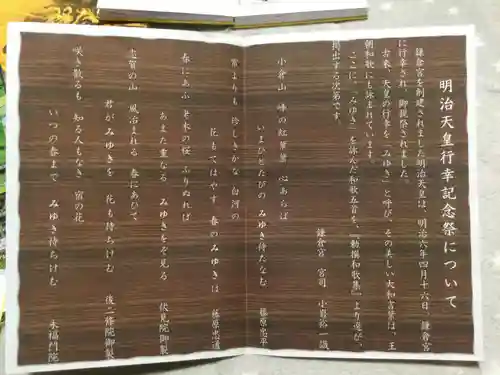 明治天皇行幸記念祭について
鎌倉宮を創建されました明治天皇は、明治六年四月十六日、鎌倉宮
に行幸され、御親祭されました。
古来、天皇の行幸を「みゆき」と呼び、その美しい大和言葉は、王
朝和歌にも詠まれています。
ここに、「みゆき」を詠んだ和歌五首を、『勅撰和歌集』より選び、
掲出する次第です。
鎌倉宮 宮司 小岩裕一 識
小倉山 峰の紅葉葉 心あらば
いまひとたびの みゆき待たなむ 藤原忠平
常よりも 珍しきかな 白河の
花もてはやす 春のみゆきは 藤原忠通
春にあふ 老木の桜 ふりぬれば
あまた重なる みゆきをぞ見る 伏見院御製
志賀の山 風治まれる 春にあひて
君がみゆきを 花も待ちけむ 後二條院御製
咲き散るも 知る人もなき 宿の花
いつの春まで みゆき待ちけむ 永福門院